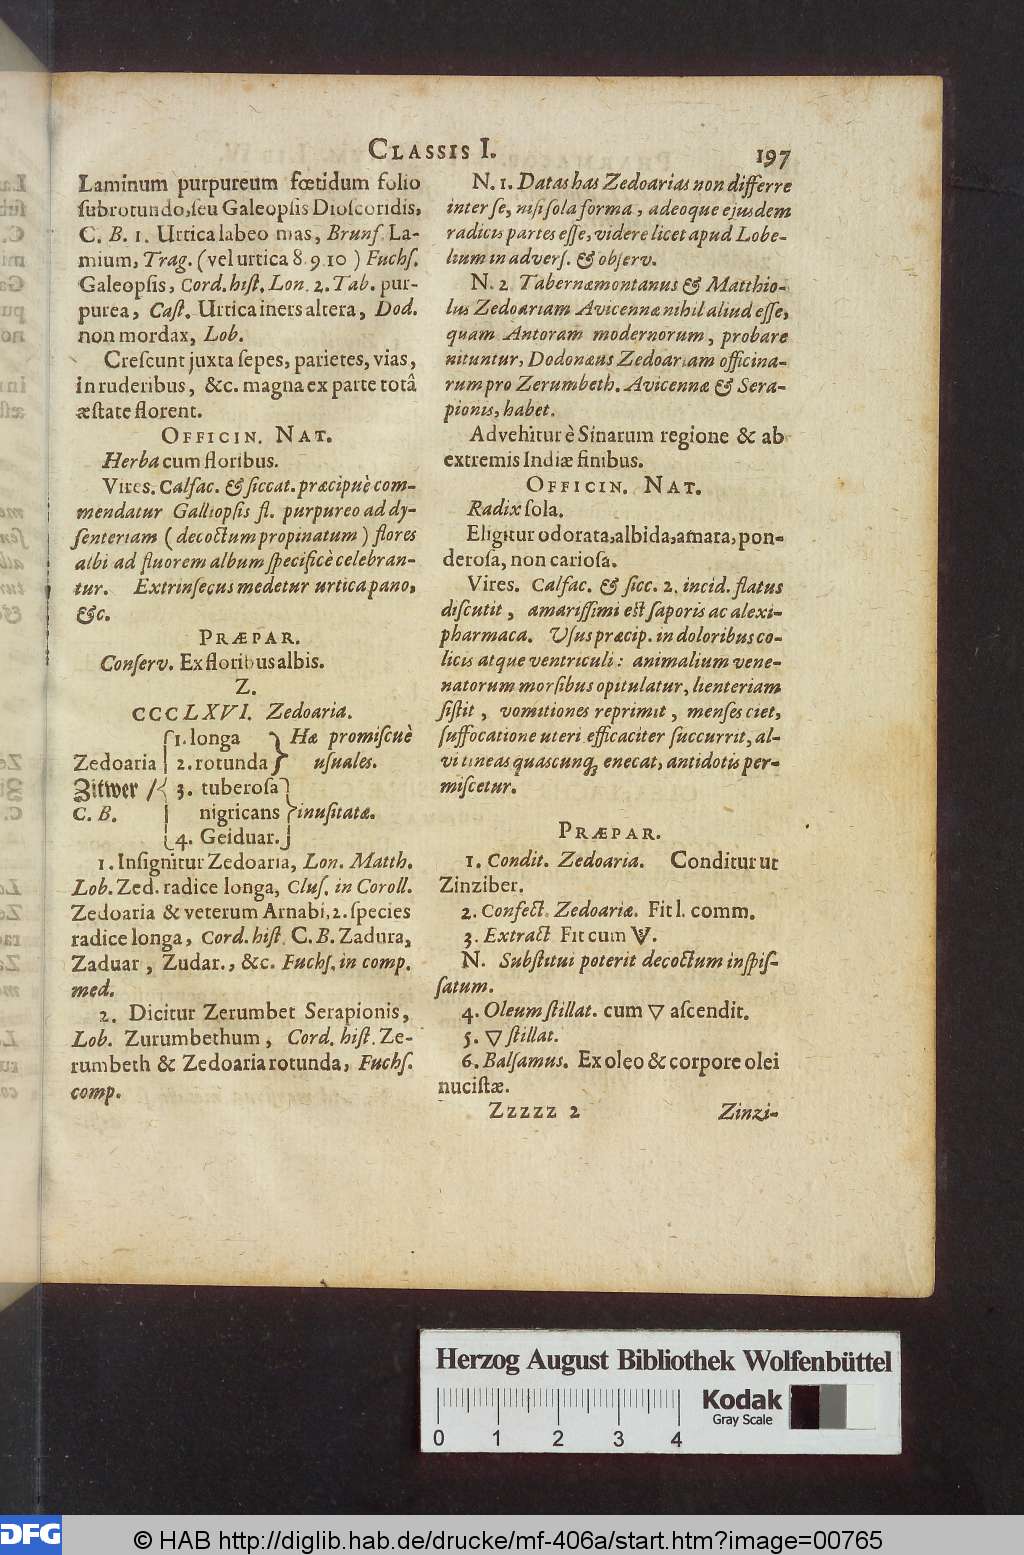 CLASSIS I.
197
Laminum purpureum fœtidum folio
ſubrotundo, ſeu Galeopſis Dioſcoridis,
C. B. 1. Urtica labeo mas, Brunf. La-
mium, Trag. (vel urtica 8. 9. 10 ) Fuchſ.
Galeopſis, Cord. hiſt. Lon. 2. Tab. pur-
purea, Caſt. Urtica iners altera, Dod.
non mordax, Lob.
Creſcunt juxta ſepes, parietes, vias,
in ruderibus, &c. magna ex parte totâ
æſtate florent.
OFFICIN. NAT.
Herba cum floribus.
Vires. Calfac. & ſiccat. præcipuè com-
mendatur Galliopſis fl. purpureo ad dy-
ſenteriam ( decoctum propinatum ) flores
albi ad fluorem album ſpecificè celebran-
tur. Extrinſecus medetur urtica pano,
&c.
PRÆPAR.
Conſerv. Ex floribus albis.
Z.
CCCLXVI. Zedoaria.
1. longa Hæ promiſcuè
Zedoaria 2. rotunda uſuales.
Zitwer / 3. tuberoſa
C. B. nigricans inuſitatæ.
4. Geiduar.
1. Inſignitur Zedoaria, Lon. Matth.
Lob. Zed. radice longa, Cluſ. in Coroll.
Zedoaria & veterum Arnabi, 2. ſpecies
radice longa, Cord. hiſt. C. B. Zadura,
Zaduar, Zudar., &c. Fuchſ. in comp.
med.
2. Dicitur Zerumbet Serapionis,
Lob. Zurumbethum, Cord. hiſt. Ze-
rumbeth & Zedoaria rotunda, Fuchſ.
comp.
N. 1. Datas has Zedoarias non differre
inter ſe, niſi ſola forma, adeoque ejusdem
radicis partes eſſe, videre licet apud Lobe-
lium in adverſ. & obſerv.
N. 2 Tabernæmontanus & Matthio-
lus Zedoariam Avicennæ nihil aliud eſſe,
quam Antoram modernorum, probare
nituntur, Dodonæus Zedoariam officina-
rum pro Zerumbeth. Avicennæ & Sera-
pionis, habet.
Advehitur è Sinarum regione & ab
extremis Indiæ finibus.
OFFICIN. NAT.
Radix ſola.
Eligitur odorata, albida, amara, pon-
deroſa, non carioſa.
Vires. Calfac. & ſicc. 2. incid. flatus
diſcutit, amariſſimi eſt ſaporis ac alexi-
pharmaca. Uſus præcip. in doloribus co-
licis atque ventriculi: animalium vene-
natorum morſibus opitulatur, lienteriam
ſiſtit, vomitiones reprimit, menſes ciet,
ſuffocatione uteri efficaciter ſuccurrit, al-
vi tineas quascunq; enecat, antidotis per-
miſcetur.
PRÆPAR.
1. Condit. Zedoaria. Conditur ut
Zinziber.
2. Confect. Zedoariæ. Fit l. comm.
3. Extract Fit cum
N. Subſtitui poterit decoctum inſpiſ-
ſatum.
4. Oleum ſtillat. cum ▽ aſcendit.
5. ▽ ſtillat.
6. Balſamus. Ex oleo & corpore olei
nuciſtæ.
Zzzzz 2 Zinzi-
Herzog August Bibliothek Wolfenbüttel
0 1 2 3 4
Kodak
Gray Scale
DFG
© HAB http://diglib.hab.de/drucke/mf-406a/start.htm?image=00765